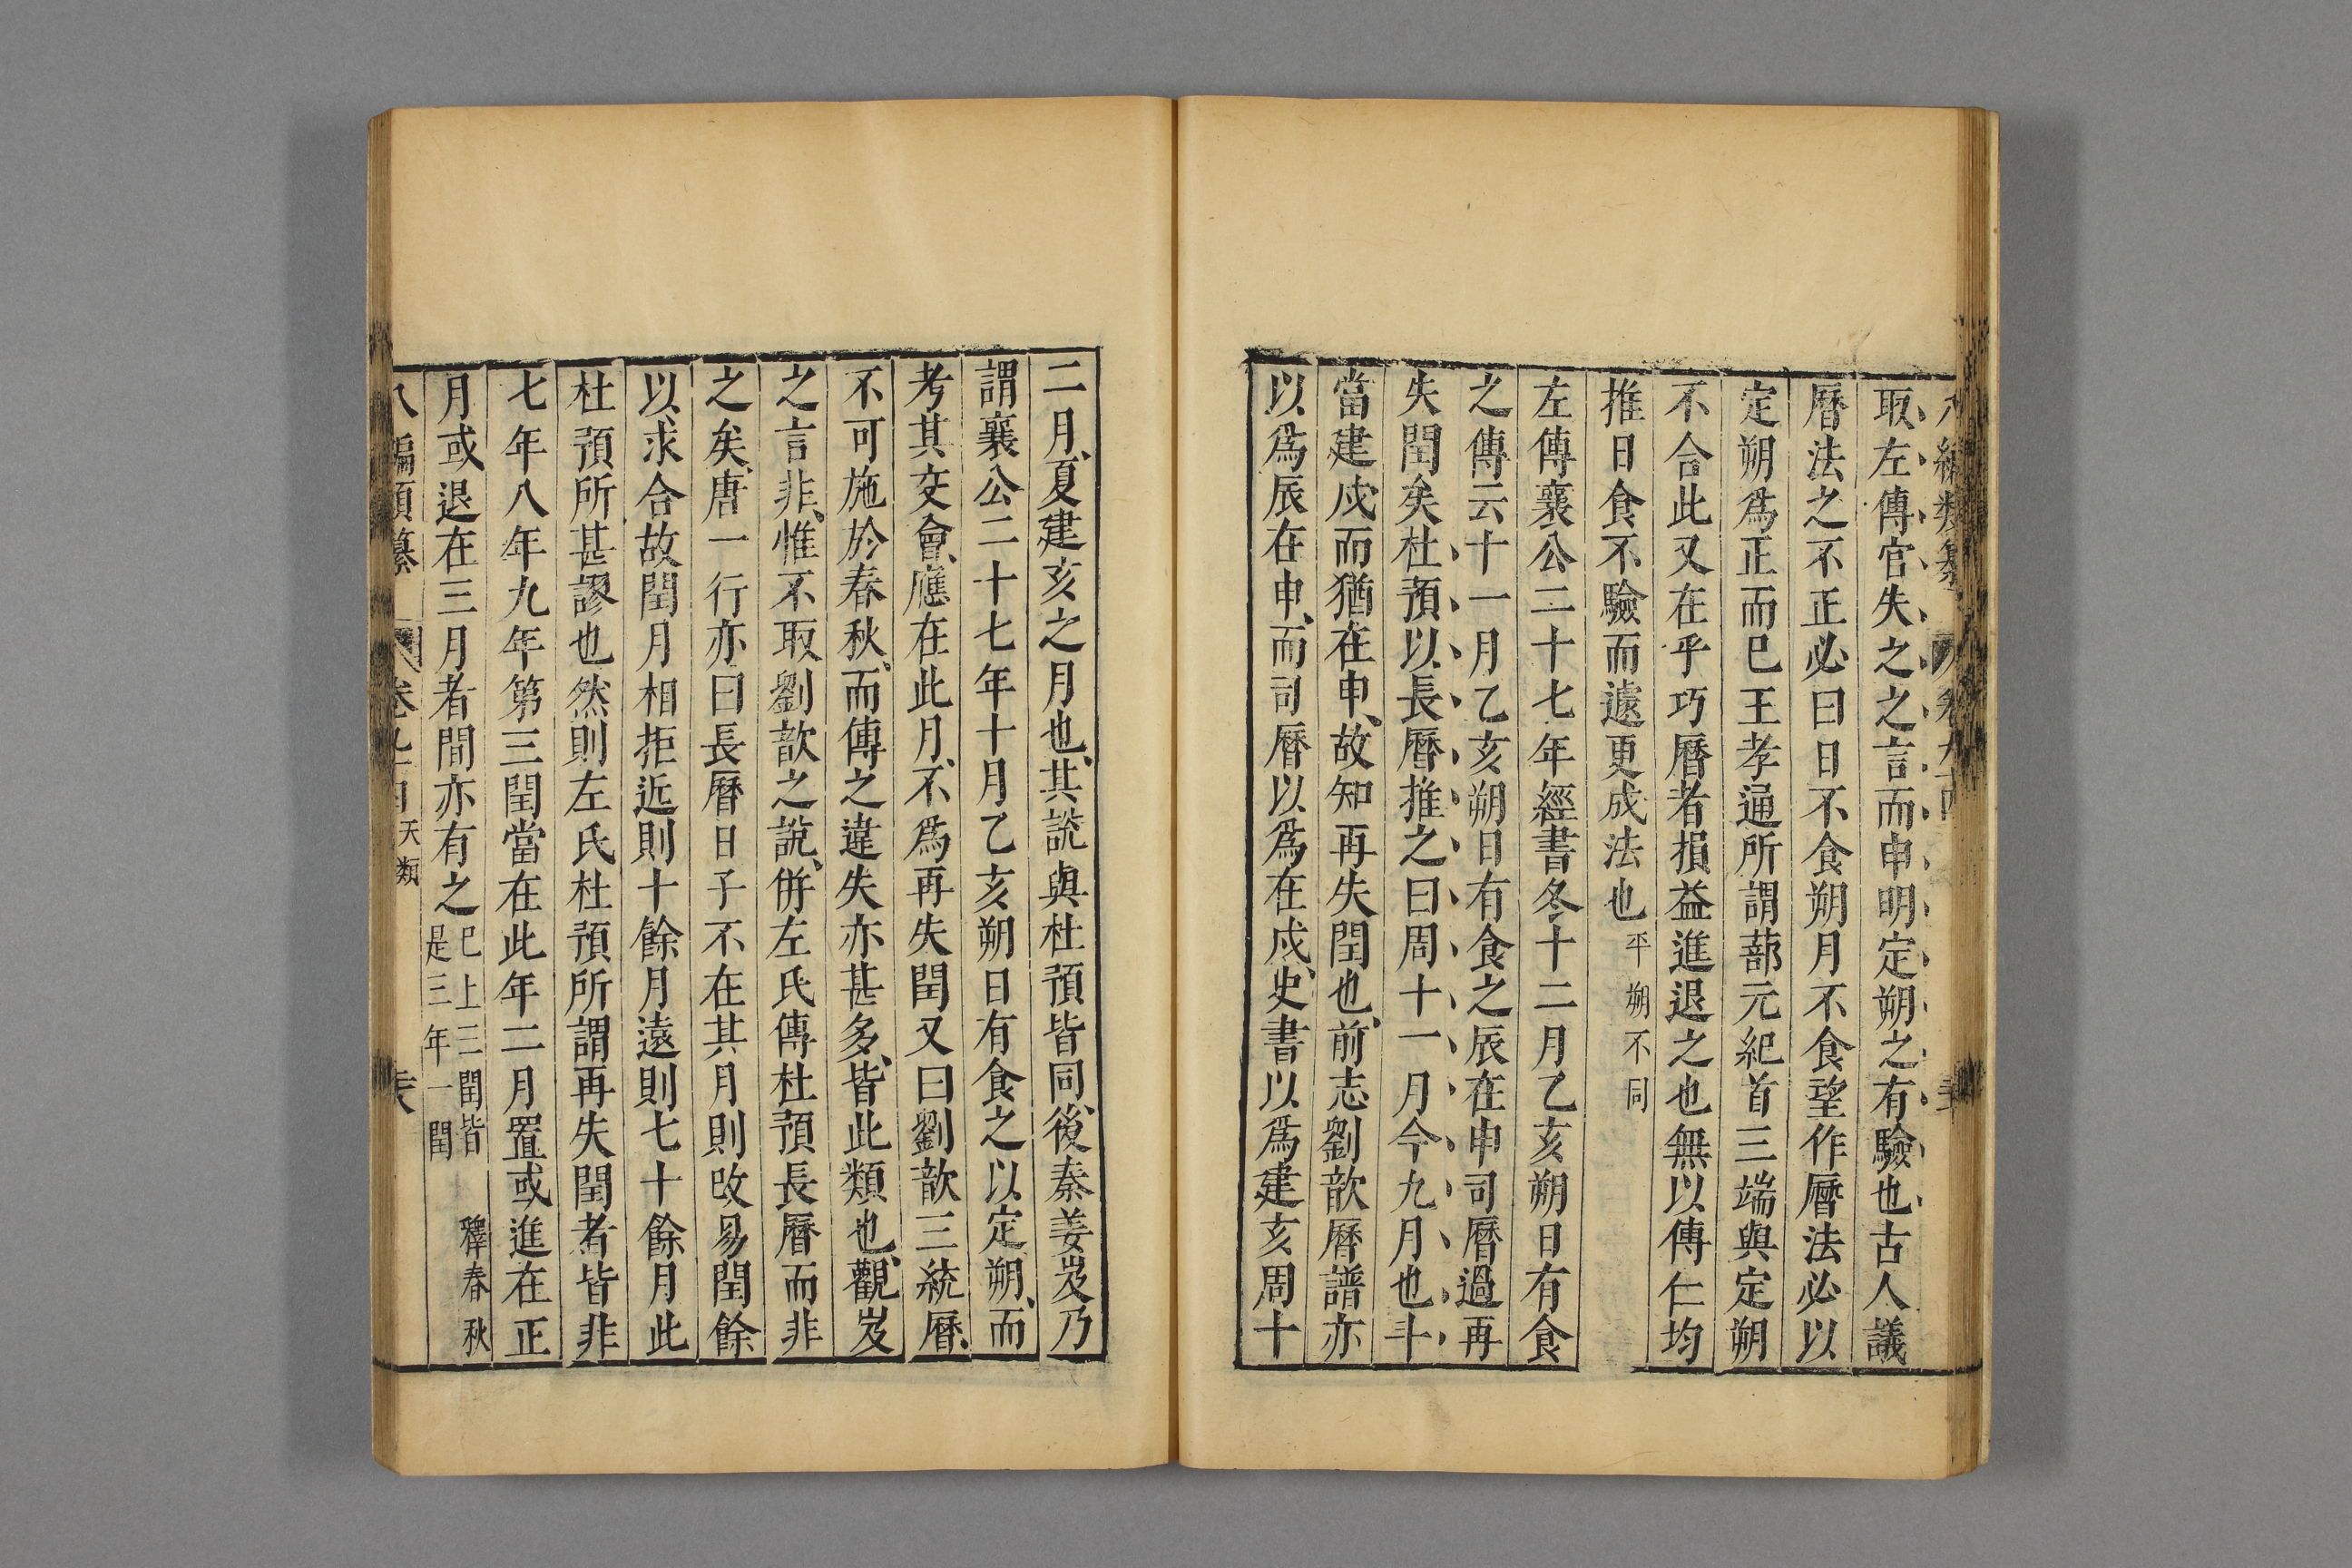 取左傳官失之之言而申明定朔之有驗也古人議
曆法之不正必曰日不食朔月不食望作曆法必以
定朔爲正而已王孝通所謂蔀元紀首三端與定朔
不合此又在乎巧曆者損益進退之也無以傅仁均
推日食不驗而遽更成法也平朔不同
左傳襄公二十七年經書冬十二月乙亥朔日有食
之傳云十一月乙亥朔日有食之辰在申司曆過再
失閏矣杜預以長曆推之曰周十一月今九月也斗
當建戌而猶在申故知再失閏也前志劉歆曆譜亦
以爲辰在申而司曆以爲在戌史書以爲建亥周十
二月夏建亥之月也其說與杜預皆同後秦姜岌乃
謂襄公二十七年十月乙亥朔日有食之以定朔而
考其交會應在此月不爲再失閏又曰劉歆三統曆
不可施於春秋而傳之違失亦甚多皆此類也觀岌
之言非惟不取劉歆之說併左氏傳杜預長曆而非
之矣唐一行亦曰長曆日子不在其月則改易閏餘
以求合故閏月相拒近則十餘月遠則七十餘月此
杜預所甚謬也然則左氏杜預所謂再失閏者皆非
七年八年九年第三閏當在此年二月置或進在正
月或退在三月者間亦有之
已上三閏皆
是三年一閏
釋春秋
天類